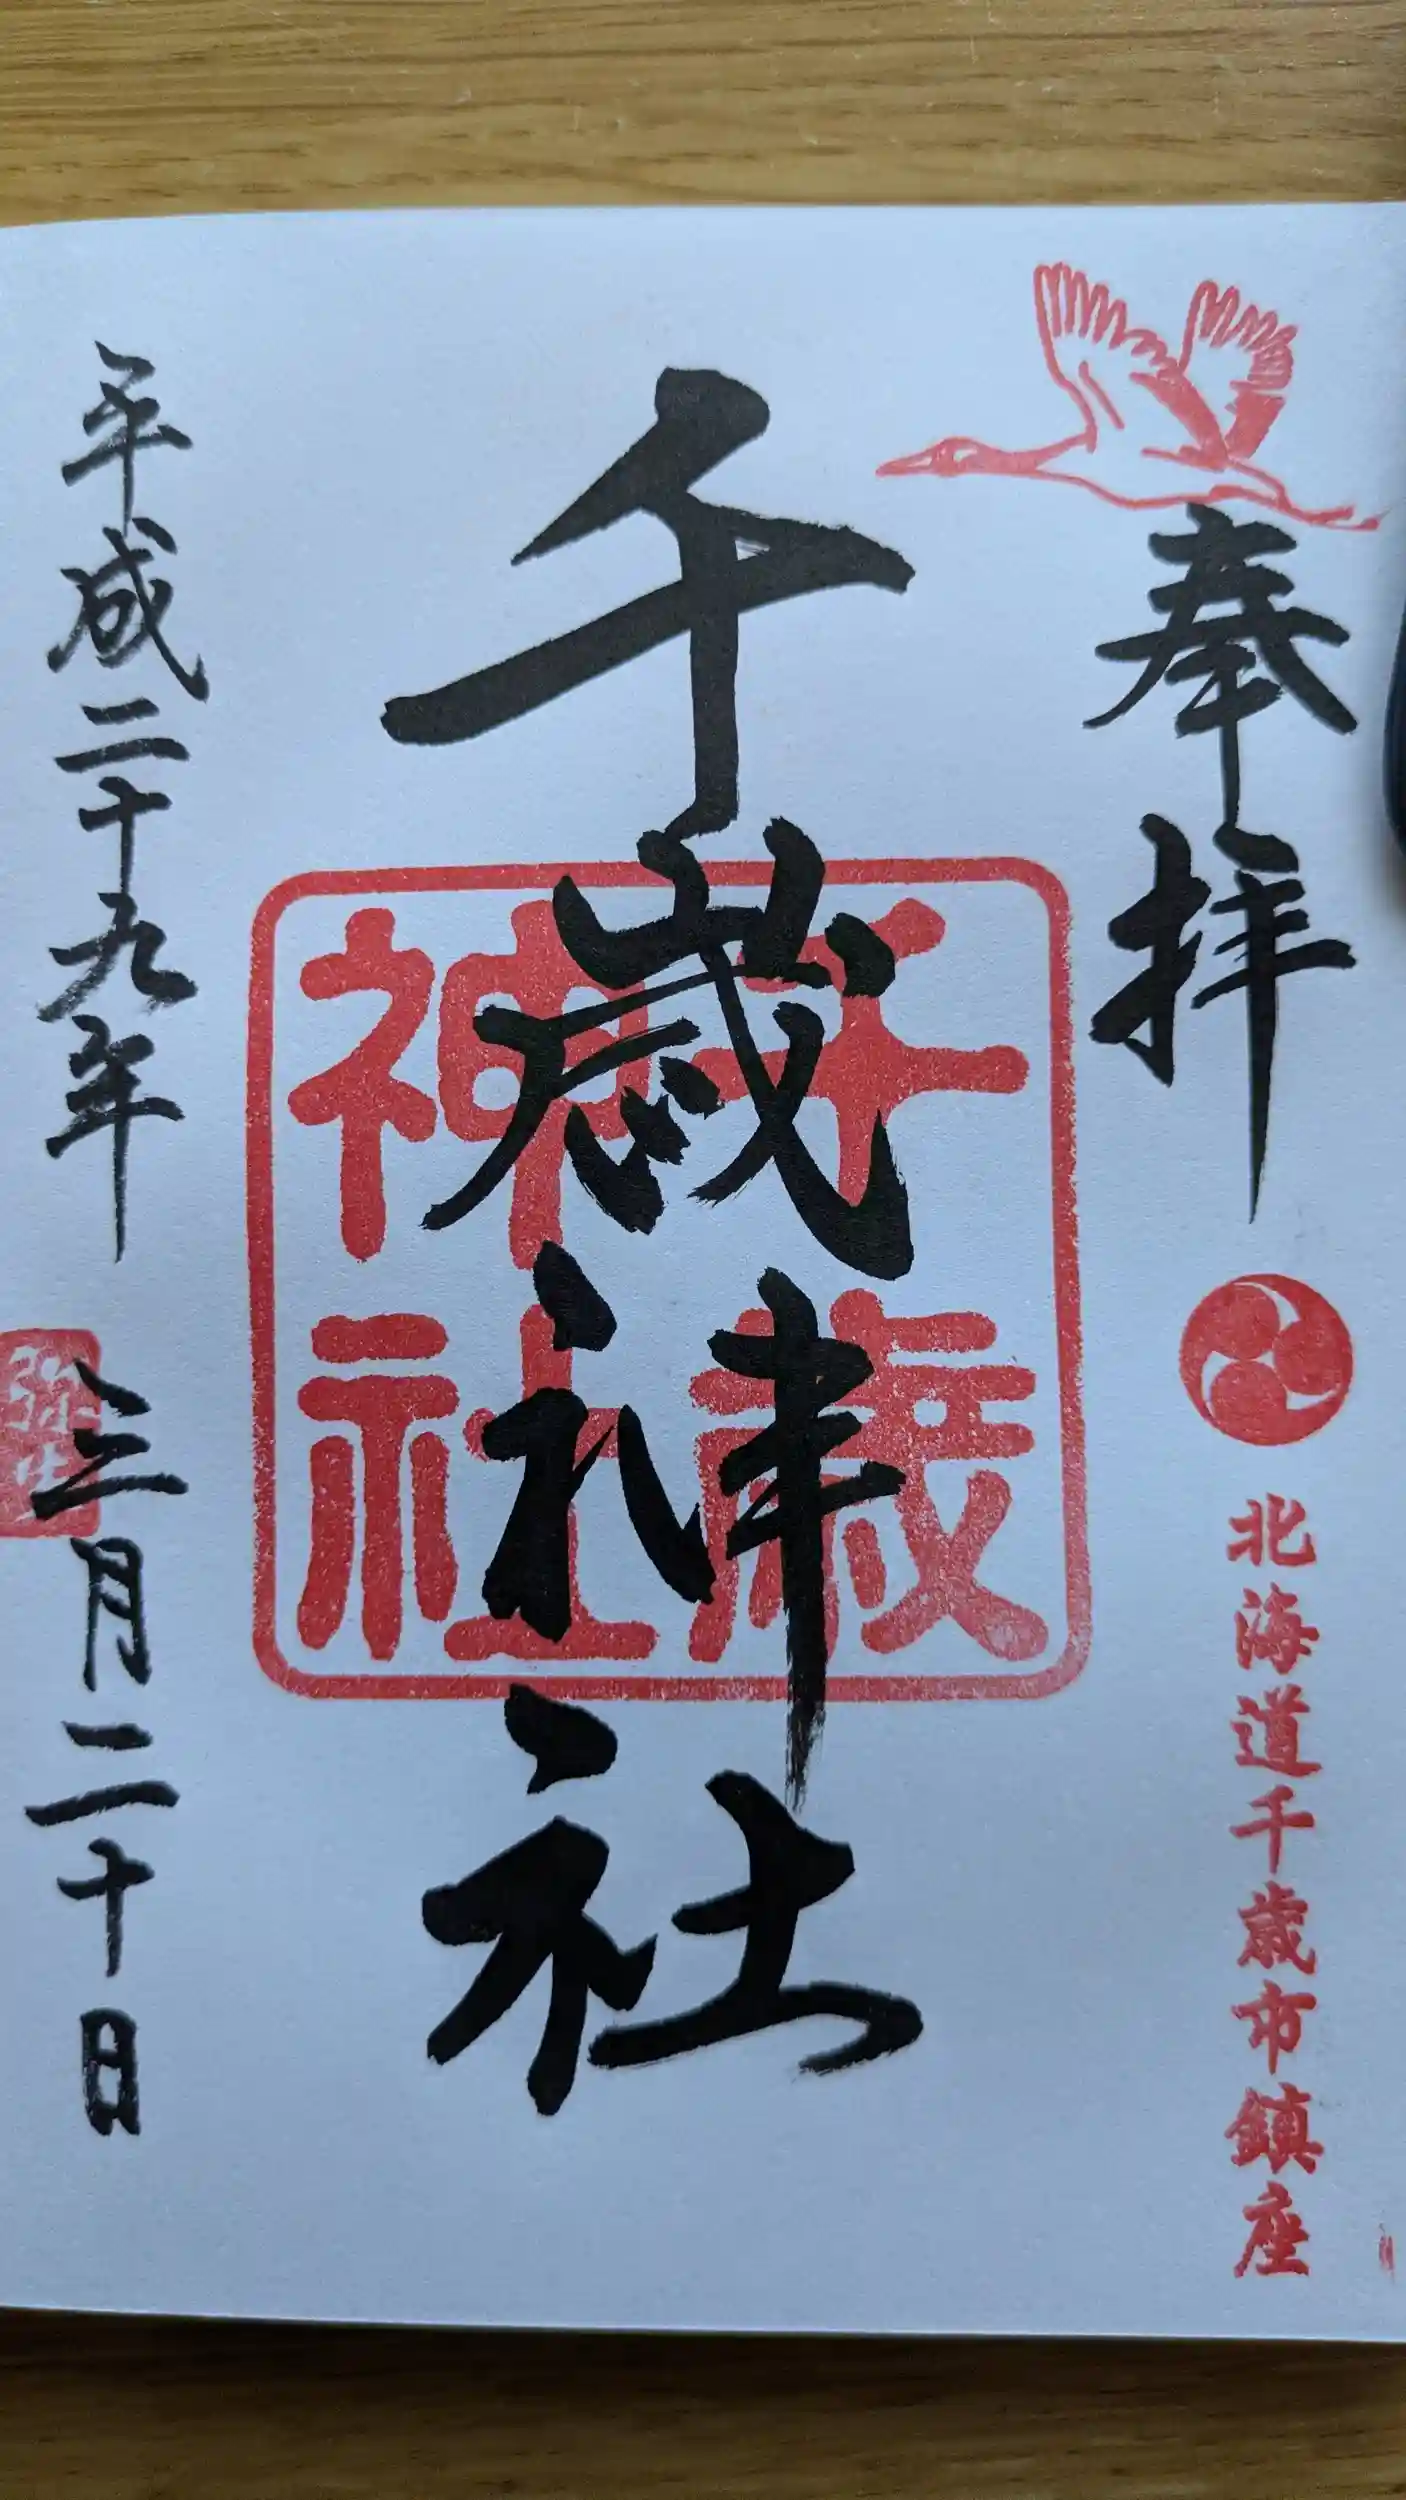 奉拝
北海道千歳市鎮座
千歳神社
千歳
神社
平成二十九年三月二十日
弥生